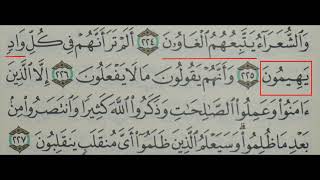 وَالشُّعَرَآءُ يَتَّبِعُهُمُ الْغَاوُنَ ۝٢٢٤ أَلَمْ تَرَ أَنَّهُمْ فِي كُلِّ وَادٍ
يَهِيمُونَ ۝٢٢٥ وَأَنَّهُمْ يَقُولُونَ مَا لَا يَفْعَلُونَ ۝٢٢٦ إِلَّا الَّذِينَ
ءَامَنُوا وَعَمِلُوا الصَّالِحَاتِ وَذَكَرُوا اللَّهَ كَثِيرًا وَانتَصَرُوا مِنْ
بَعْدِ مَا ظُلِمُوا وَسَيَعْلَمُ الَّذِينَ ظَلَمُوا أَيَّ مُنقَلَبٍ يَنقَلِبُونَ ۝٢٢٧